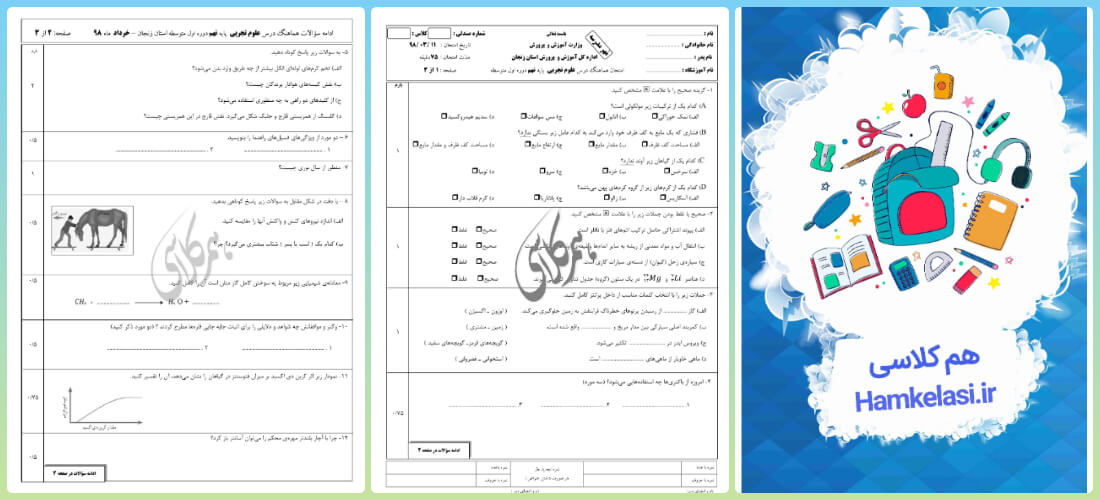 باسمه تعالی
نام :
نام خانوادگی :
نام پدر :
نام آموزشگاه :
مهر مدرسه
وزارت آموزش و پرورش
اداره کل آموزش و پرورش استان زنجان
امتحان هماهنگ درس علوم تجربی پایه نهم دوره اول متوسطه
شماره صندلی : کلاس :
تاریخ امتحان : ۱۱ /۰۳ /۹۸
مدت امتحان : ۷۵ دقیقه
صفحه : ۱ از ۳
بارم
۱- گزینه صحیح را با علامت ☒ مشخص کنید.
A) کدام یک از ترکیبات زیر مولکولی است؟
الف) نمک خوراکی ب) اتانول ج) مس سولفات د) سدیم هیدروکسید
B) فشاری که یک مایع به کف ظرف خود وارد می‌کند به کدام عامل زیر بستگی ندارد؟
الف) مساحت کف ظرف ب) مقدار مایع ج) ارتفاع مایع د) مساحت کف ظرف و مقدار مایع
C) کدام یک از گیاهان زیر آوند ندارد؟
الف) سرخس ب) خزه ج) سرو د) لوبیا
D) کدام یک از کرم‌های زیر از گروه کرم‌های پهن می‌باشد؟
الف) آسکاریس ب) زالو ج) پلاناریا د) کرم قلاب دار
۱
۲- صحیح یا غلط بودن جملات زیر را با علامت ☒ مشخص کنید.
الف) پیوند اشتراکی حاصل ترکیب اتم‌های فلز با نافلز است
صحیح غلط
ب) انتقال آب و مواد معدنی از ریشه به سایر اندام‌ها
صحیح غلط
ج) سیاره‌ی زحل (کیوان) از دسته‌ی سیارات گازی است.
صحیح غلط
د) عناصر Mg و Li در یک ستون (گروه) جدول
صحیح غلط
۱
۳- جملات زیر را با انتخاب کلمات مناسب از داخل پرانتز کامل کنید.
الف) گاز ............ از رسیدن پرتوهای خطرناک فرابنفش به زمین جلوگیری می‌کند. ( اوزون ـ اکسیژن )
ب) کمربند اصلی سیارکی بین مدار مریخ و ............ واقع شده است. ( زمین ـ مشتری )
ج) ویروس ایدز در ............ تکثیر می‌شود. ( گویچه‌های قرمز ـ گویچه‌های سفید )
د) ماهی خاویار از ماهی‌های ............ است. ( استخوانی ـ غضروفی )
۱
۴- امروزه از باکتری‌ها چه استفاده‌هایی می‌شود؟ (سه مورد)
۱. ............ ۲. ............ ۳. ............
۰/۷۵
ادامه سؤالات در صفحه ۲
نمره با عدد
نمره با حروف
نمره تجدید نظر
در صورت داشتن اعتراض
نمره با عدد
نمره با حروف
ادامه سؤالات هماهنگ درس علوم تجربی پایه نهم دوره اول متوسطه استان زنجان – خرداد ماه ۹۸
صفحه: ۲ از ۳
بارم
۵- به سوالات زیر پاسخ کوتاه دهید.
الف) تخم کرم‌های لوله‌ای انگل بیشتر از چه طریق وارد بدن می‌شود؟
ب) نقش کیسه‌های هوادار پرندگان چیست؟
ج) از کلیدهای دو راهی به چه منظوری استفاده می‌شود؟
د) گلسنگ از همزیستی قارچ و جلبک شکل می‌گیرد. نقش قارچ در این همزیستی چیست؟
۲
۶- دو مورد از ویژگی‌های فسیل‌های راهنما را بنویسید.
۱. ............ ۲. ............
۰/۵
۷- منظور از سال نوری چیست؟
۱
۸- با دقت در شکل مقابل به سوالات زیر پاسخ کوتاهی بدهید.
الف) اندازه نیروهای کنش و واکنش آنها را مقایسه کنید.
ب) کدام یک ( اسب یا پسر ) شتاب بیشتری می‌گیرد؟ چرا؟
۰/۵
۹- معادله‌ی شیمیایی زیر مربوط به سوختن کامل گاز متان است آن را کامل کنید.
CH₄ + ............ → H₂O + ............
۰/۵
۱۰- وگنر و موافقانش چه شواهد و دلایلی را برای اثبات جابه جایی قاره‌ها مطرح کردند ؟ (دو مورد ذکر کنید)
۱. ............ ۲. ............
۰/۵
۱۱- نمودار زیر اثر کربن دی اکسید بر میزان فتوسنتز در گیاهان را نشان می‌دهد، آن را تفسیر کنید.
مقدار کربن‌دی‌اکسید
۰/۷۵
۱۲- چرا با آچار بلندتر مهره‌ی محکم را می‌توان آسانتر باز کرد؟
۰/۵
ادامه سؤالات در صفحه ۳
هم کلاسی
هم کلاسی
هم کلاسی
Hamkelasi.ir